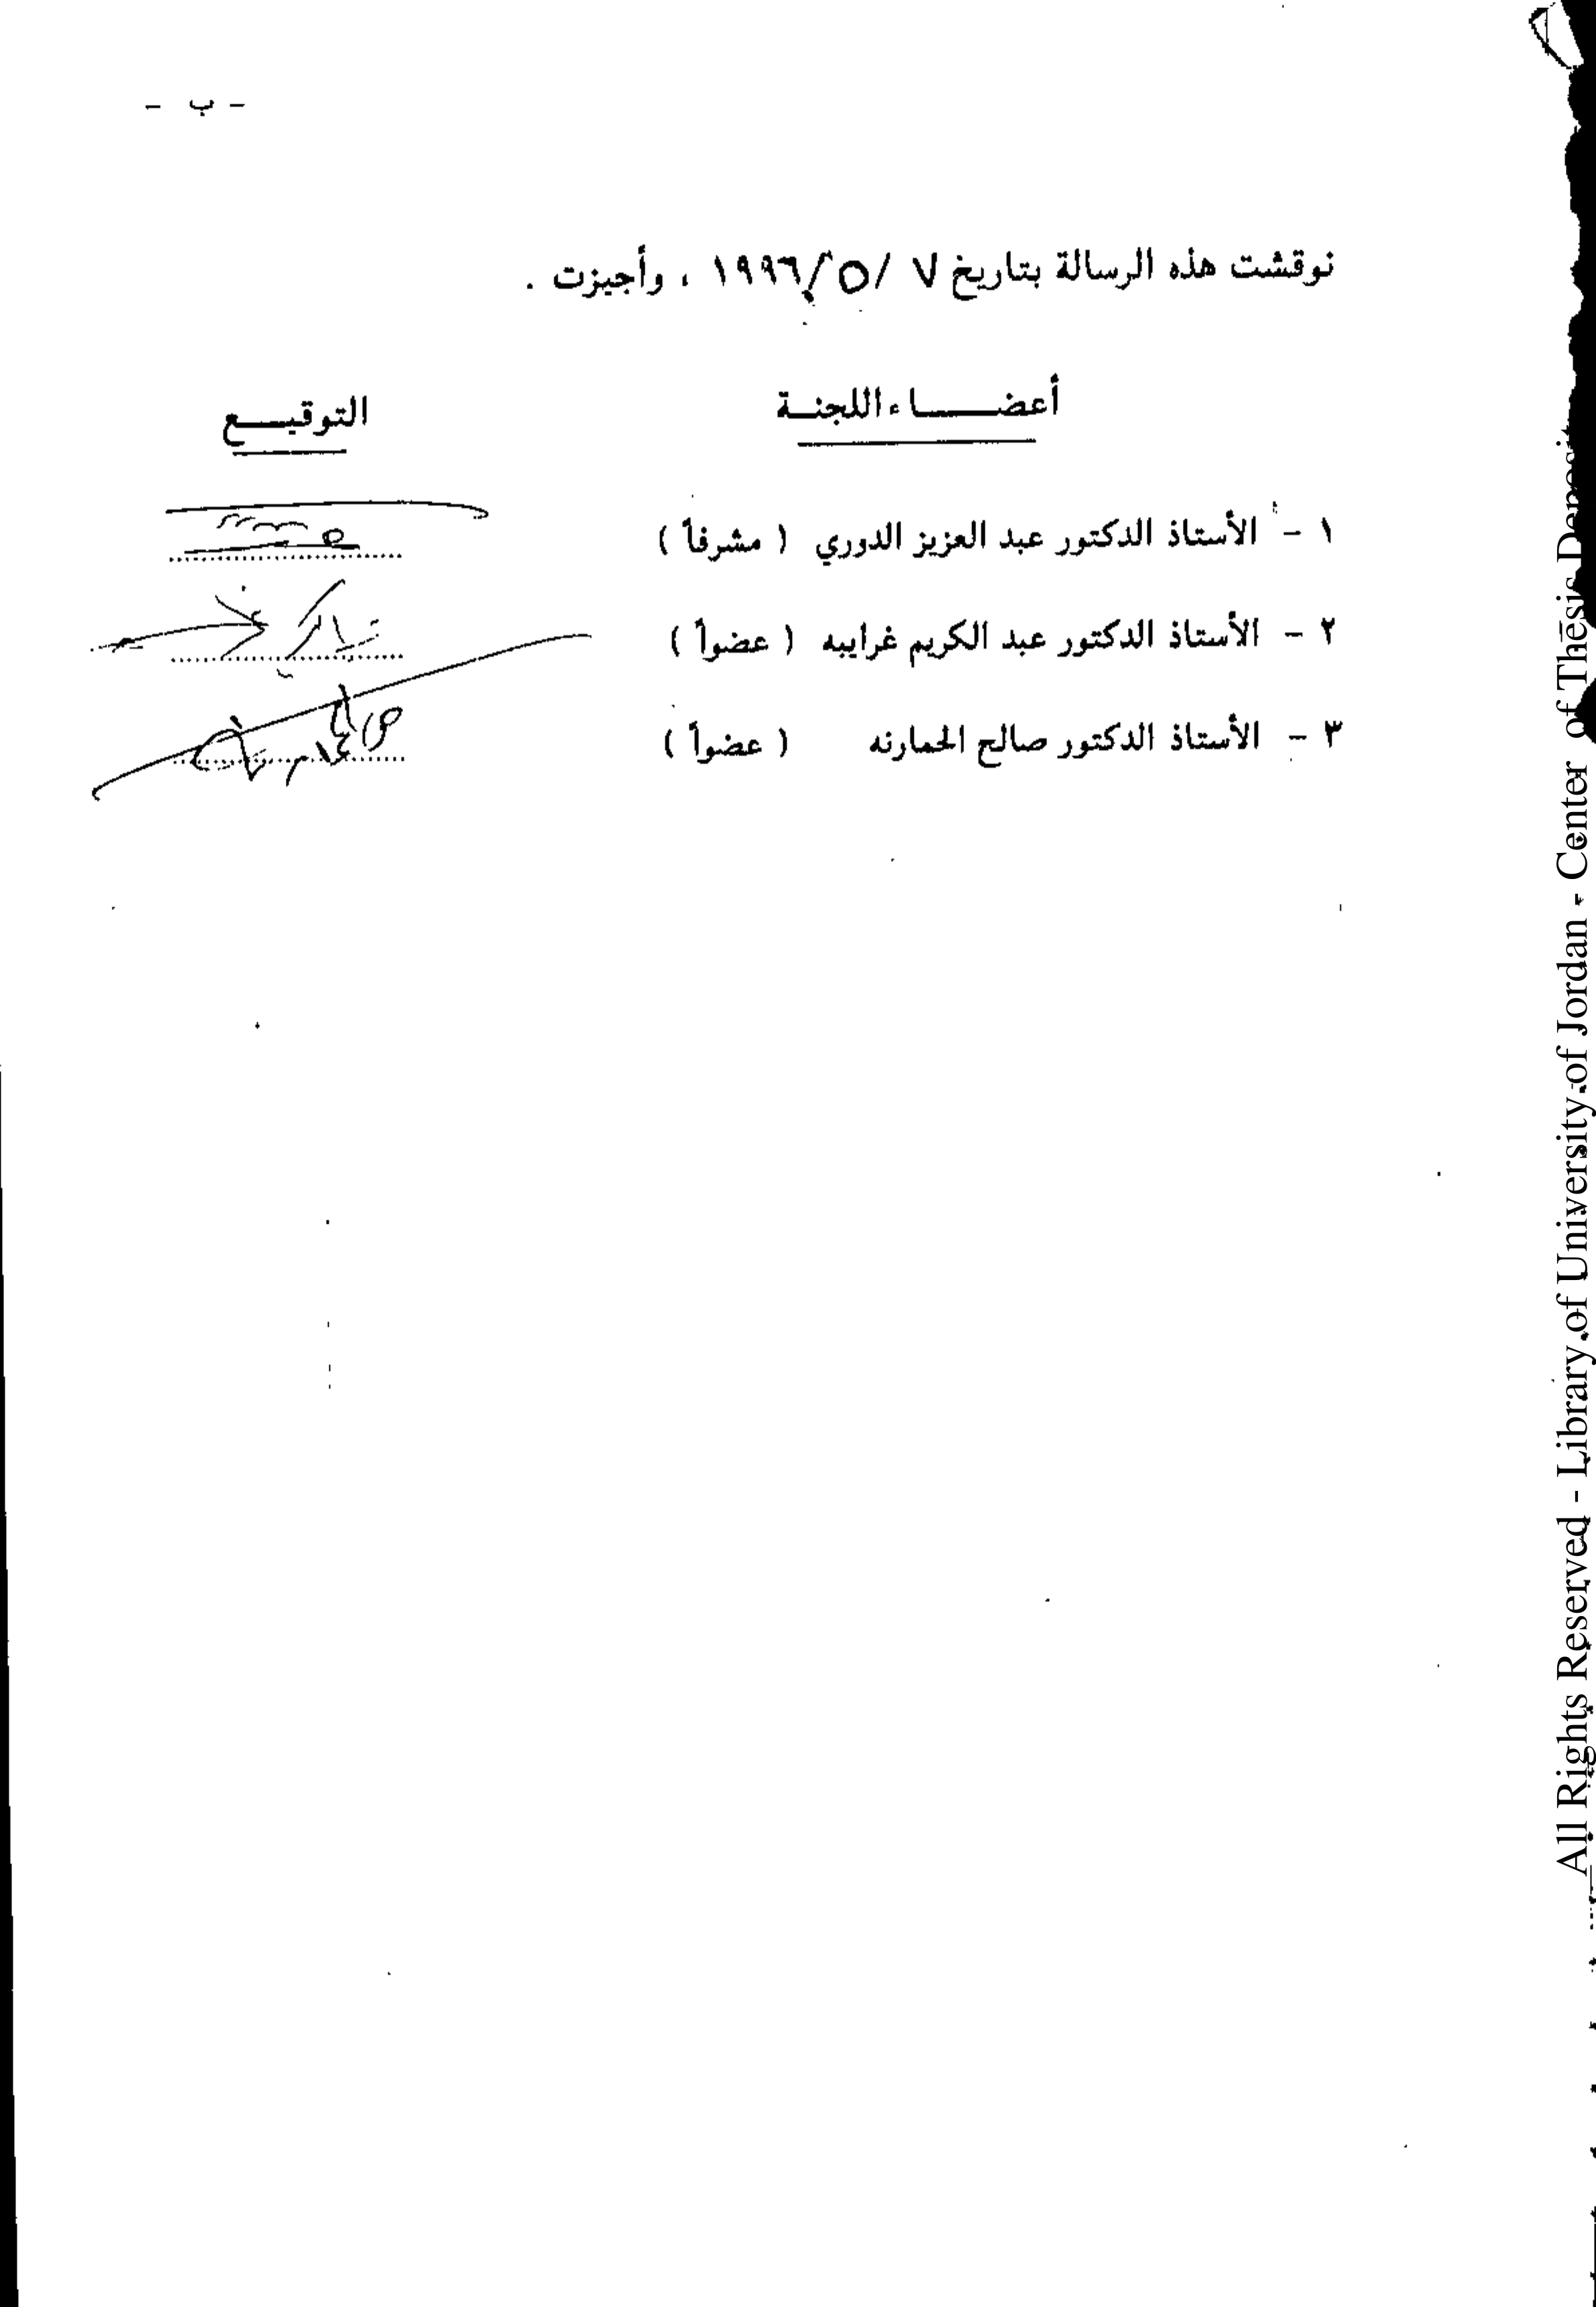 - ب -
نوقشت هذه الرسالة بتاريخ ٧ /٥/ ١٩٩٦ ، وأجيزت .
أعضـــــاء اللجنـة التوقيـــع
١ - الأستاذ الدكتور عبد العزيز الدوري ( مشرفاً )
٢ - الأستاذ الدكتور عبد الكريم غرايبه ( عضواً )
٣ - الأستاذ الدكتور صالح الحمارنه ( عضواً )
All Rights Reserved - Library of University of Jordan - Center of Thesis Deposit